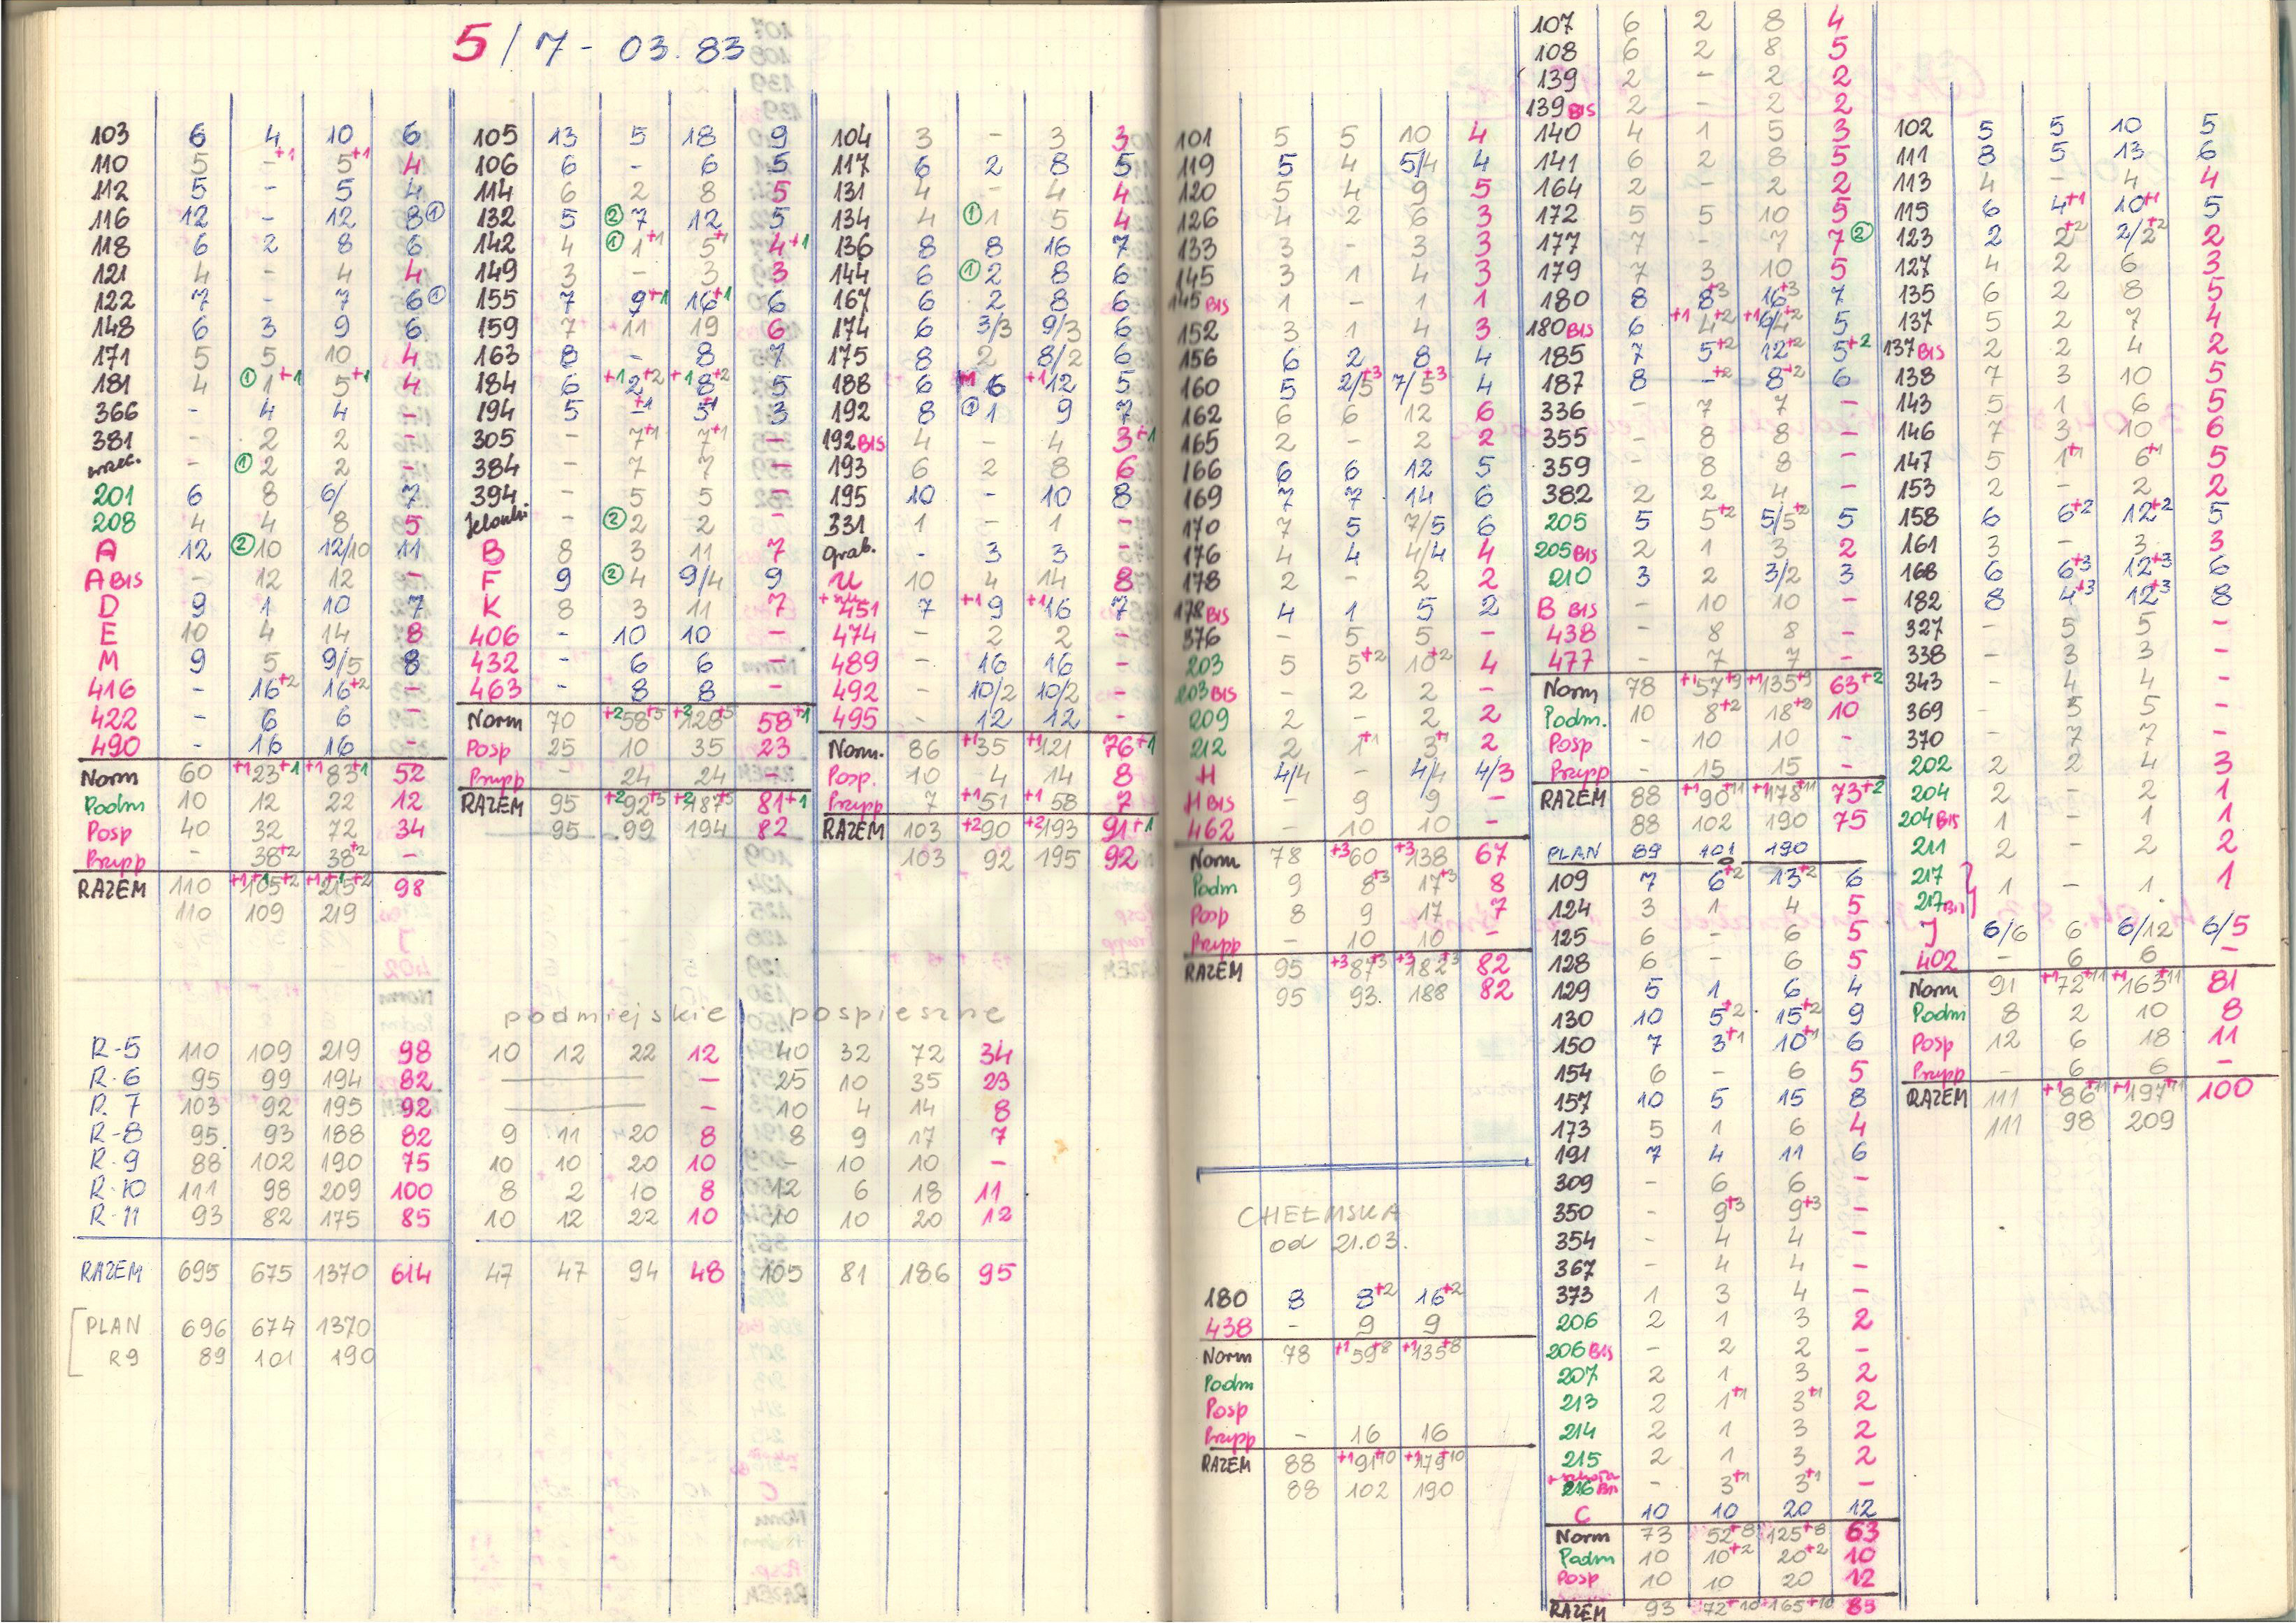 5/7-03.83
103 6 4 10 6
110 5 -+1 5+1 4
112 5 - 5 4
116 12 - 12 8①
118 6 2 8 6
121 4 - 4 4
122 7 - 7 6①
148 6 3 9 6
171 5 5 10 4
181 4 ①1+1 5+1 4
366 - 4 4 -
381 - 2 2 -
- ①2 2 -
201 6 8 6/ 7
208 4 4 8 5
A 12 ②10 12/10 11
A BIS - 12 12 -
D 9 1 10 7
E 10 4 14 8
M 9 5 9/5 8
416 - 16+2 16+2 -
422 - 6 6 -
490 - 16 16 -
Norm 60 +1 23+1 +1 83+1 52
Podm 10 12 22 12
Posp 40 32 72 34
Przysp - 38+2 38+2 -
RAZEM 110 +1+1 105+2 +1+1 215+2 98
110 109 219
105 13 5 18 9
106 6 - 6 5
114 6 2 8 5
132 5 ②7 12 5
142 4 ①1+1 5+1 4+1
149 3 - 3 3
155 7 9+1 16+1 6
159 7 11 19 6
163 8 - 8 7
184 6 +1 2+2 +1 8+2 5
194 5 -+1 5+1 3
305 - 7+1 7+1 -
384 - 7 7 -
394 - 5 5 -
Jelonki - ②2 2 -
B 8 3 11 7
F 9 ②4 9/4 9
K 8 3 11 7
406 - 10 10 -
432 - 6 6 -
463 - 8 8 -
Norm 70 +2 58+5 +2 128+5 58+1
Posp 25 10 35 23
Przysp - 24 24 -
RAZEM 95 +2 92+5 +2 187+5 81+1
95 99 194 82
104 3 - 3 3
117 6 2 8 5
131 4 - 4 4
134 4 ①1 5 4
136 8 8 16 7
144 6 ①2 8 6
167 6 2 8 6
174 6 3/3 9/3 6
175 8 2 8/2 6
188 6 +1 6 +1 12 5
192 8 ①1 9 7
192 BIS 4 - 4 3+1
193 6 2 8 6
195 10 - 10 8
331 1 - 1 -
grab. - 3 3 -
U 10 4 14 8
451 7 +1 9 +1 16 7
474 - 2 2 -
489 - 16 16 -
492 - 10/2 10/2 -
495 - 12 12 -
Norm. 86 +1 35 +1 121 76+1
Posp. 10 4 14 8
Przysp 7 +1 51 +1 58 7
RAZEM 103 +2 90 +2 193 91+1
103 92 195 92
podmiejskie pospieszne
R-5 110 109 219 98 10 12 22 12 40 32 72 34
R-6 95 99 194 82 - - 25 10 35 23
R-7 103 92 195 92 - - 10 4 14 8
R-8 95 93 188 82 9 11 20 8 8 9 17 7
R-9 88 102 190 75 10 10 20 10 - 10 10 -
R-10 111 98 209 100 8 2 10 8 12 6 18 11
R-11 93 82 175 85 10 12 22 10 10 10 20 12
RAZEM 695 675 1370 614 47 47 94 48 105 81 186 95
PLAN 696 674 1370
R9 89 101 190
101 5 5 10 4
119 5 4 5/4 4
120 5 4 9 5
126 4 2 6 3
133 3 - 3 3
145 3 1 4 3
145 BIS 1 - 1 1
152 3 1 4 3
156 6 2 8 4
160 5 2/5+3 7/5+3 4
162 6 6 12 6
165 2 - 2 2
166 6 6 12 5
169 7 7 14 6
170 7 5 7/5 6
176 4 4 4/4 4
178 2 - 2 2
178 BIS 4 1 5 2
376 - 5 5 -
203 5 5+2 10+2 4
203 BIS - 2 2 -
209 2 - 2 2
212 2 1+1 3+1 2
H 4/4 - 4/4 4/3
H BIS - 9 9 -
462 - 10 10 -
Norm 78 +3 60 +3 138 67
Podm 9 8+3 17+3 8
Posp 8 9 17 7
Przysp - 10 10 -
RAZEM 95 +3 87+3 +3 182+3 82
95 93. 188 82
CHEŁMSKA
od 21.03.
180 8 8+2 16+2
438 - 9 9
Norm 78 +1 59+8 +1 135+8
Podm
Posp
Przysp - 16 16
RAZEM 88 +1 91+10 +1 179+10
88 102 190
107 6 2 8 4
108 6 2 8 5
139 2 - 2 2
139 BIS 2 - 2 2
140 4 1 5 3
141 6 2 8 5
164 2 - 2 2
172 5 5 10 5
177 7 - 7 7②
179 7 3 10 5
180 8 8+3 16+3 7
180 BIS 6 +1 4+2 +1 6/4+2 5
185 7 5+2 12+2 5+2
187 8 -+2 8+2 6
336 - 7 7 -
355 - 8 8 -
359 - 8 8 -
382 2 2 4 -
205 5 5+2 5/5+2 5
205 BIS 2 1 3 2
210 3 2 3/2 3
B BIS - 10 10 -
438 - 8 8 -
477 - 7 7 -
Norm 78 +1 57+9 +1 135+9 63+2
Podm. 10 8+2 18+2 10
Posp - 10 10 -
Przysp - 15 15 -
RAZEM 88 +1 90+11 +1 178+11 73+2
88 102 190 75
PLAN 89 101 190
109 7 6+2 13+2 6
124 3 1 4 5
125 6 - 6 5
128 6 - 6 5
129 5 1 6 4
130 10 5+2 15+2 9
150 7 3+1 10+1 6
154 6 - 6 5
157 10 5 15 8
173 5 1 6 4
191 7 4 11 6
309 - 6 6 -
350 - 9+3 9+3 -
354 - 4 4 -
367 - 4 4 -
373 1 3 4 -
206 2 1 3 2
206 BIS - 2 2 -
207 2 1 3 2
213 2 1+1 3+1 2
214 2 1 3 2
215 2 1 3 2
216 - 3+1 3+1 -
C 10 10 20 12
Norm 73 52+8 125+8 63
Podm 10 10+2 20+2 10
Posp 10 10 20 12
RAZEM 93 72+10 165+10 85
102 5 5 10 5
111 8 5 13 6
113 4 - 4 4
115 6 4+1 10+1 5
123 2 2+2 2/2+2 2
127 4 2 6 3
135 6 2 8 5
137 5 2 7 4
137 BIS 2 2 4 2
138 7 3 10 5
143 5 1 6 5
146 7 3 10 6
147 5 1+1 6+1 5
153 2 - 2 2
158 6 6+2 12+2 5
161 3 - 3 3
168 6 6+3 12+3 6
182 8 4+3 12+3 8
327 - 5 5 -
338 - 3 3 -
343 - 4 4 -
369 - 5 5 -
370 - 7 7 -
202 2 2 4 3
204 2 - 2 1
204 BIS 1 - 1 1
211 2 - 2 2
217
217 BIS 1 - 1 1
J 6/6 6 6/12 6/5
402 - 6 6 -
Norm 91 +1 72+11 +1 163+11 81
Podm 8 2 10 8
Posp 12 6 18 11
Przysp - 6 6 -
RAZEM 111 +1 86+11 +1 197+11 100
111 98 209